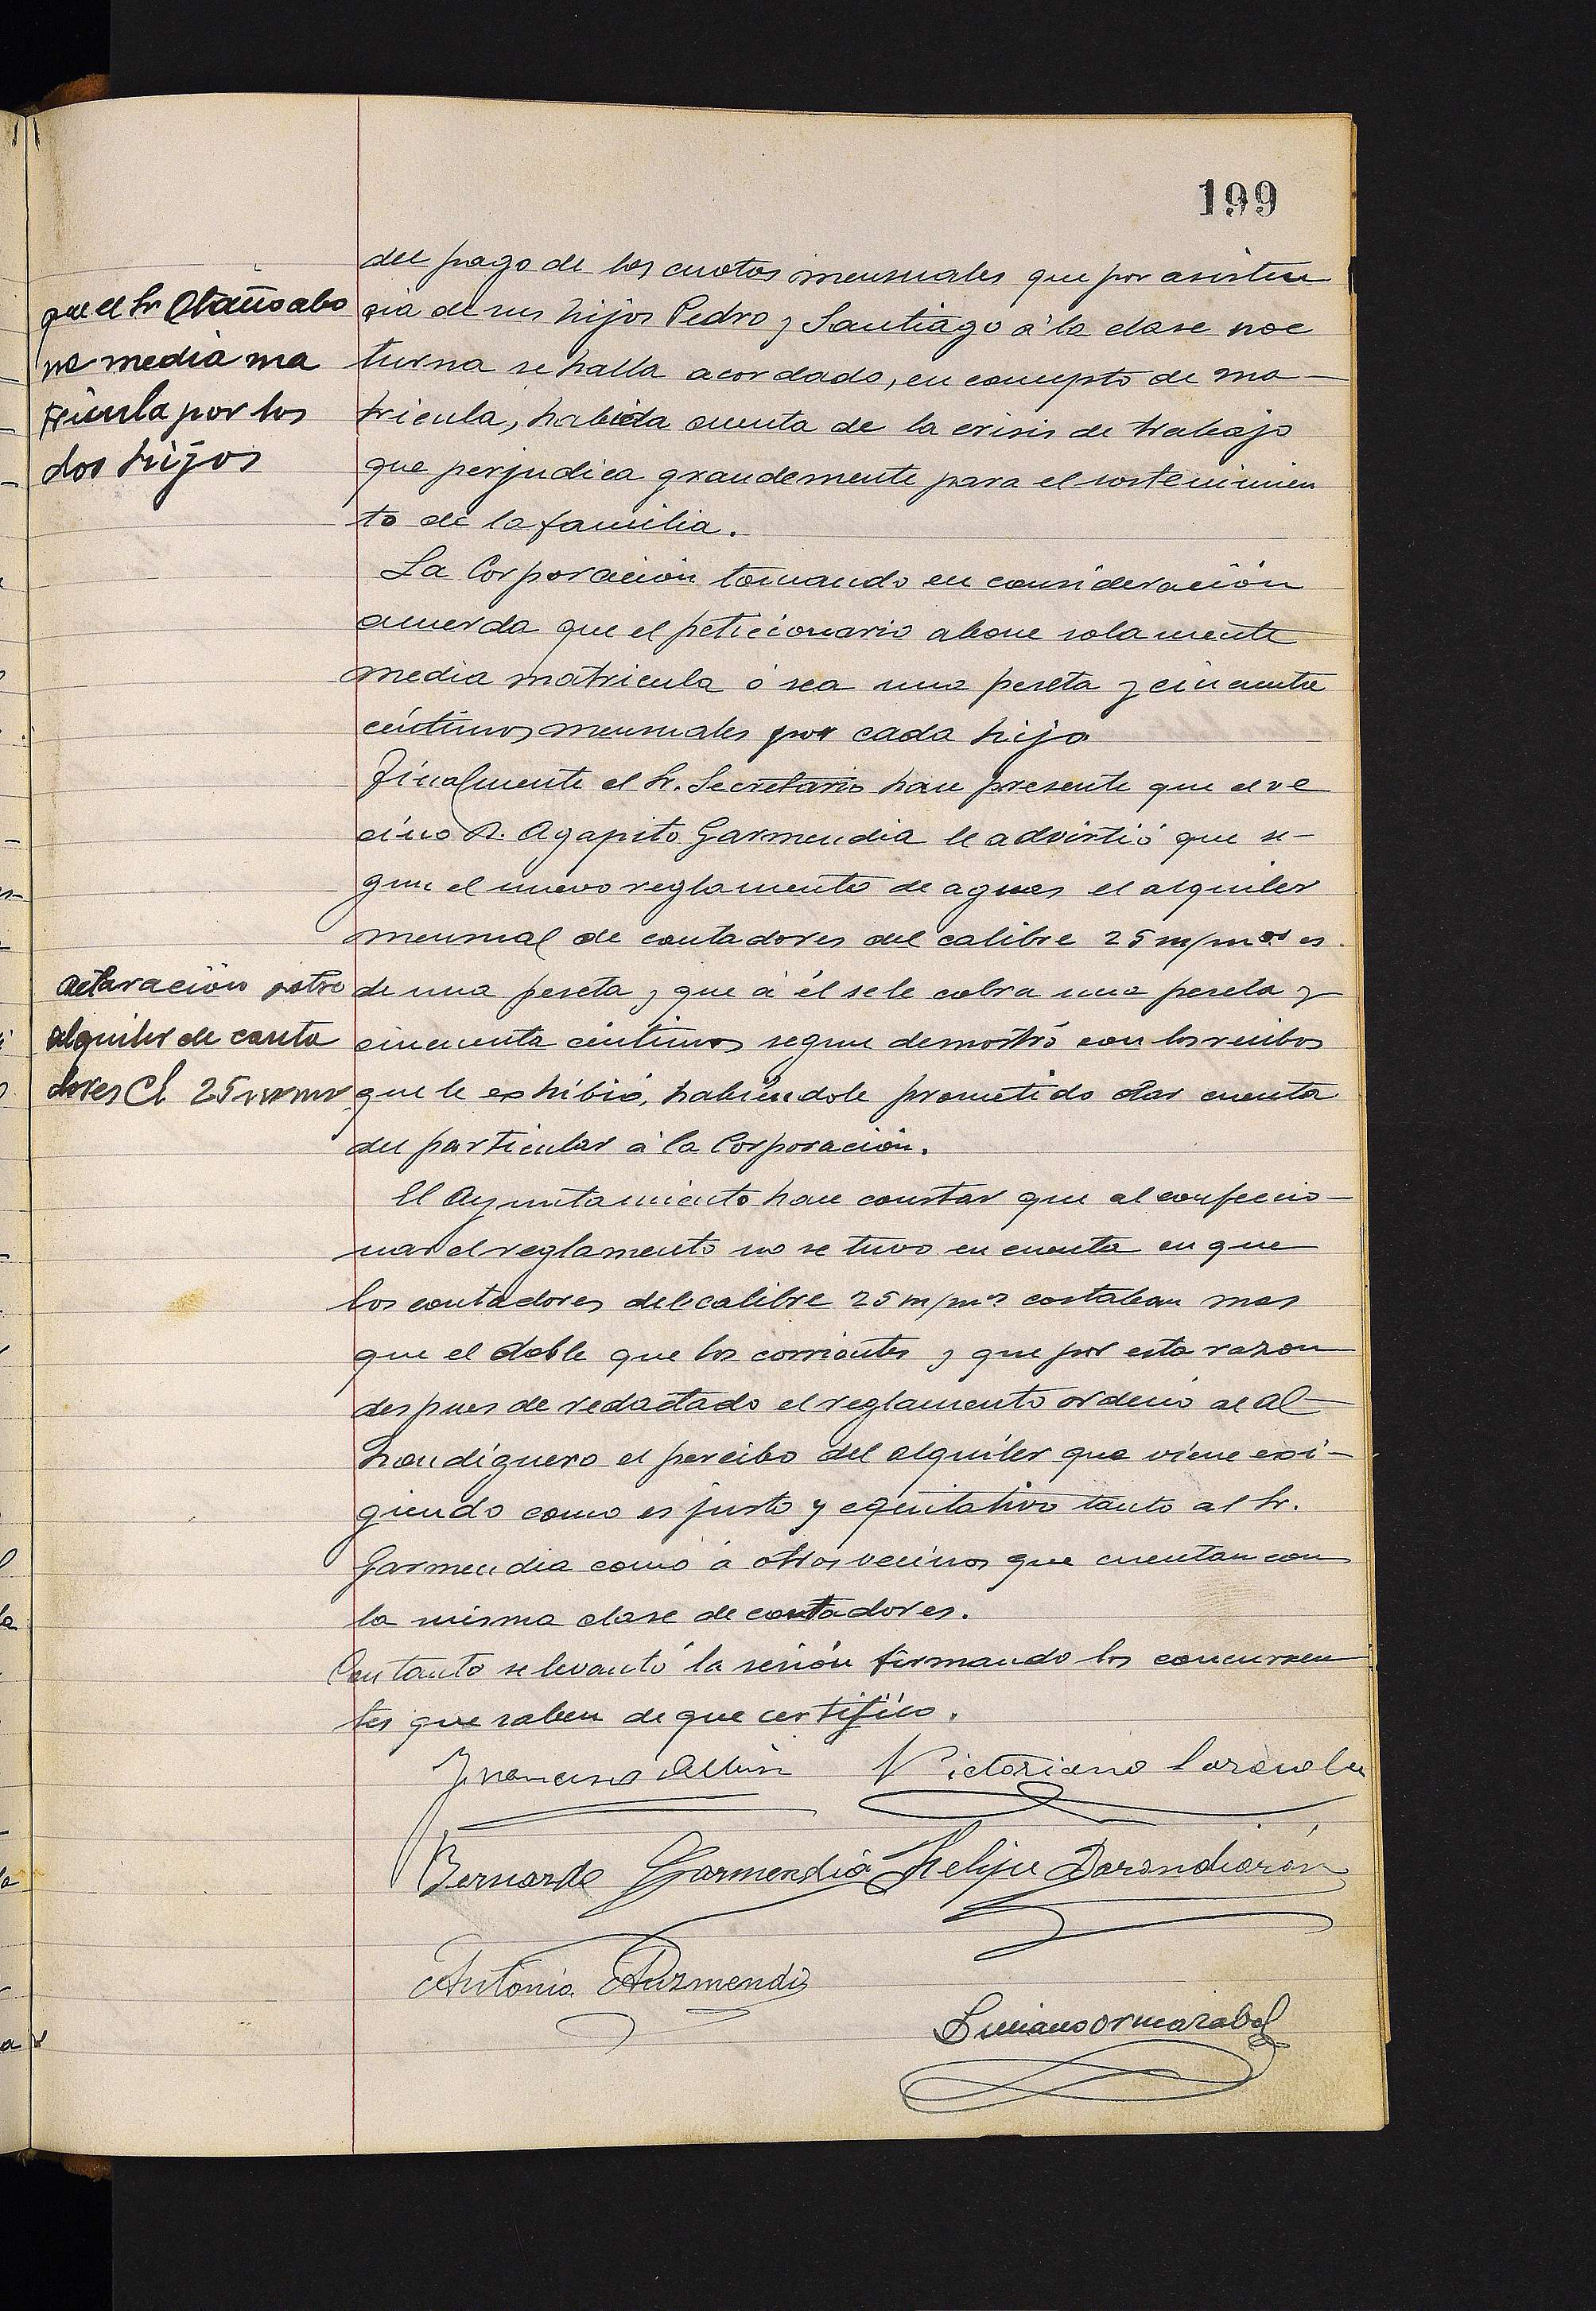 199
que el Sr Otaño abo
ne media ma
tricula por los
dos hijos
del pago de las cuotas mensuales que por asisten
cia de sus hijos Pedro y Santiago á la clase noc
turna se halla acordado, en concepto de ma-
tricula, habida cuenta de la crisis de trabajo
que perjudica grandemente para el sostenimien
to de la familia.
La Corporación tomando en consideración
acuerda que el peticionario abone solamente
media matricula ó sea una peseta y cincuenta
céntimos mensuales por cada hijo
Finalmente el Sr. Secretario hace presente que el ve
cino D. Agapito Garmendia le advirtió que se-
gun el nuevo reglamento de aguas el alquiler
mensual de contadores del calibre 25 m/mos es
Aclaración sobre
alquiler de conta
dores Cl 25 mm
de una peseta y que á él se le cobra una peseta y
cincuenta céntimos segun demostró con los recibos
que le exhibió, habiendole prometido dar cuenta
del particular á la Corporación.
El Ayuntamiento hace constar que al confeccio-
nar el reglamento no se tuvo en cuenta en que
los contadores del calibre 25 m/ms costaban mas
que el doble que los corrientes y que por esta razon
despues de redactado el reglamento ordenó al Al-
hondiguero el percibo del alquiler que viene exi-
giendo como es justo y equitativo tanto al Sr.
Garmendia como á otros vecinos que cuentan con
la misma clase de contadores.
Con tanto se levantó la sesión firmando los concurren
tes que saben de que certifico.
Francisco Albin Victoriano
Bernardo Garmendia Felipe Barandiarán
Antonio Armendia
Luciano Ormazabal